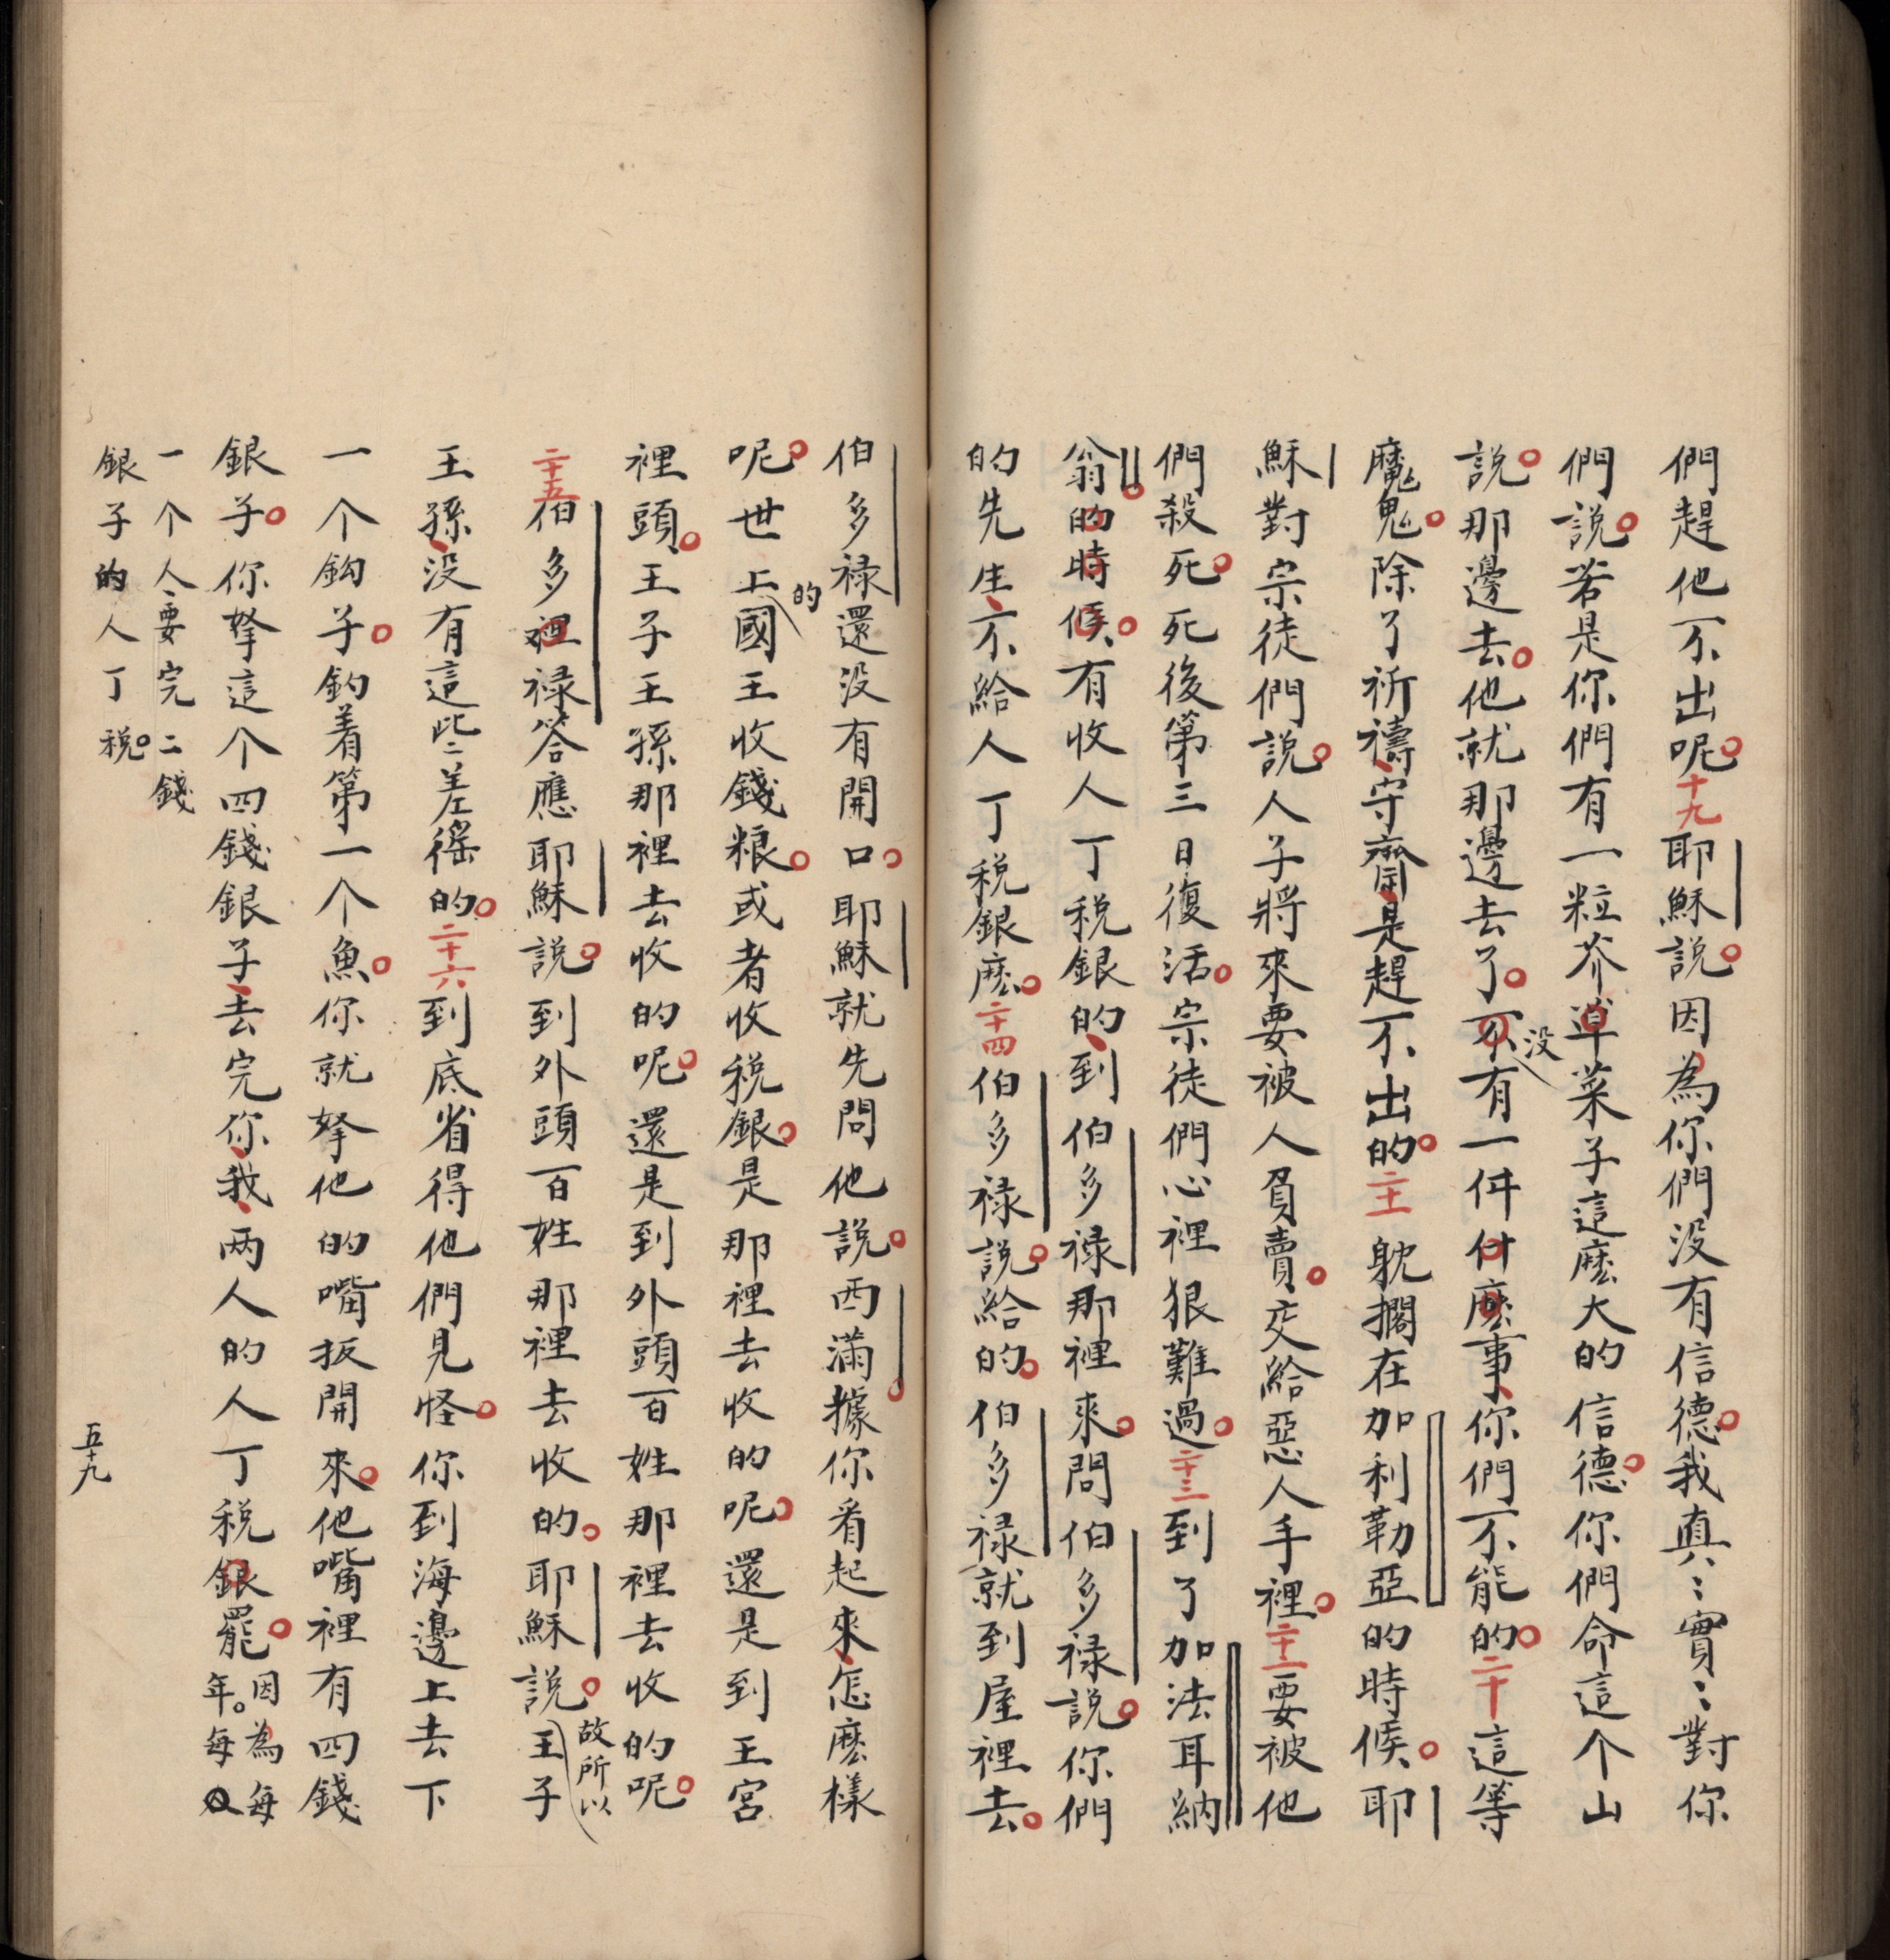 們趕他不出呢十九耶穌說因為你們没有信德我真〻實〻對你
們說若是你們有一粒芥草菜子這麽大的信德你們命這个山
說那邊去他就那邊去了不没有一件什麽事你們不能的二十這等
魔鬼除了祈禱守齋是趕不出的二十一躭擱在加利勒亞的時候耶
穌對宗徒們說人子將來要被人負賣交給惡人手裡二十二要被他
們殺死死後第三日復活宗徒們心裡狠難過二十三到了加法耳納
翁的時候有收人丁税銀的到伯多禄那裡來問伯多禄説你們
的先生不給人丁税銀麽二十四伯多禄説給的伯多禄就到屋裡去
伯多禄還没有開口耶穌就先問他說西滿據你看起來怎麽樣
呢世上的國王收錢粮或者收税銀是那裡去收的呢還是到王宮
裡頭王子王孫那裡去收的呢還是到外頭百姓那裡去收的呢
二十五伯多裡禄答應耶穌說到外頭百姓那裡去收的耶穌說故所以王子
王孫没有這些差徭的二十六到底省得他們見怪你到海邊上去下
一个鈎子釣着第一个魚你就拏他的嘴扳開來他嘴裡有四錢
銀子你拏這个四錢銀子去完你我两人的人丁税銀罷因為每年每人
一个人要完二錢
銀子的人丁税
五十九